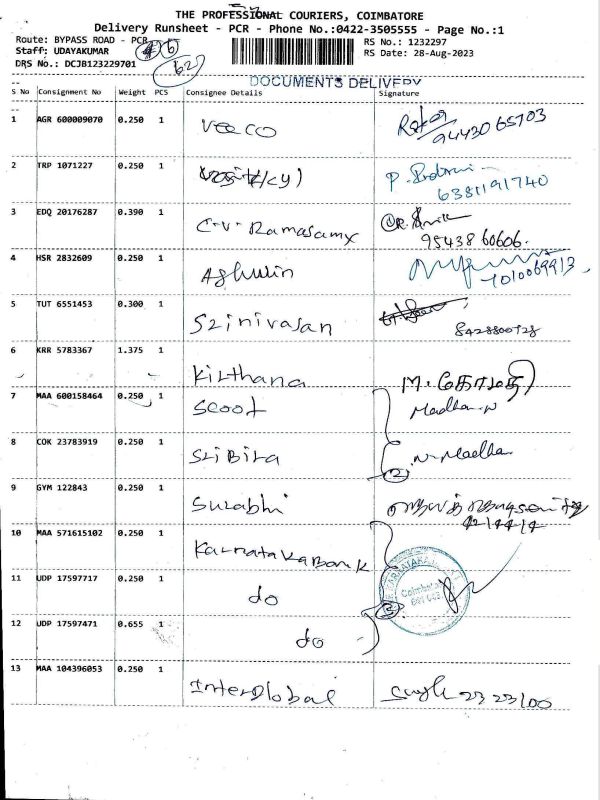 THE PROFESSIONAL COURIERS, COIMBATORE
Delivery Runsheet - PCR - Phone No.:0422-3505555 - Page No.:1
Route: BYPASS ROAD - PCR
RS No.: 1232297
Staff: UDAYAKUMAR
6
RS Date: 28-Aug-2023
DRS No.: DCJB123229701
62
DOCUMENTS DELIVERY
S No Consignment No Weight PCS Consignee Details Signature
1 AGR 600009070 0.250 1 Veeco
9443065703
2 TRP 1071227 0.250 1
6381191740
3 EDQ 20176287 0.390 1 C.V. Ramasamy
9543860606.
4 HSR 2832609 0.250 1 Ashwin
7010069913
5 TUT 6551453 0.300 1 Srinivasan
8428800728
6 KRR 5783367 1.375 1 Kirthana M. கோமதி
7 MAA 600158464 0.250 1 Scoot Madhan.N
8 COK 23783919 0.250 1 N. Madha
2
9 GYM 122843 0.250 1 Surabhi
10 MAA 571615102 0.250 1 Karnataka Bank
11 UDP 17597717 0.250 1 do
Coimbatore
3
12 UDP 17597471 0.655 1 do
13 MAA 104396053 0.250 1 InterGlobal